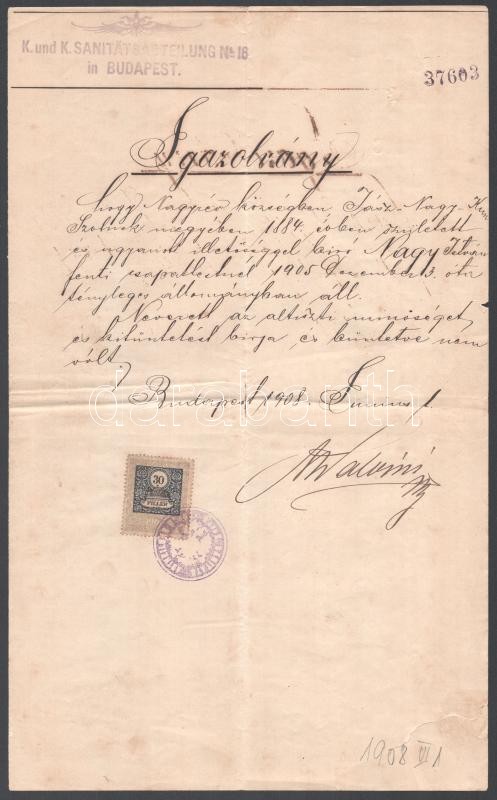 K. und K. SANITÄTSABTEILUNG No 16
in BUDAPEST.
37603
Igazolvány
hogy Nagyrév községben Jász-Nagy-Kun
Szolnok megyében 1884. évben született
és ugyanott illetőséggel biró Nagy István
fenti csapattestnél 1905 Dezember 3. óta
tényleges állományban áll.
Nevezett az altiszti minőséget
és kitüntetést birja és büntetve nem
volt
Budapest, 1908. Junius 1.
darabanth
30
FILLÉR
1908 VI 1